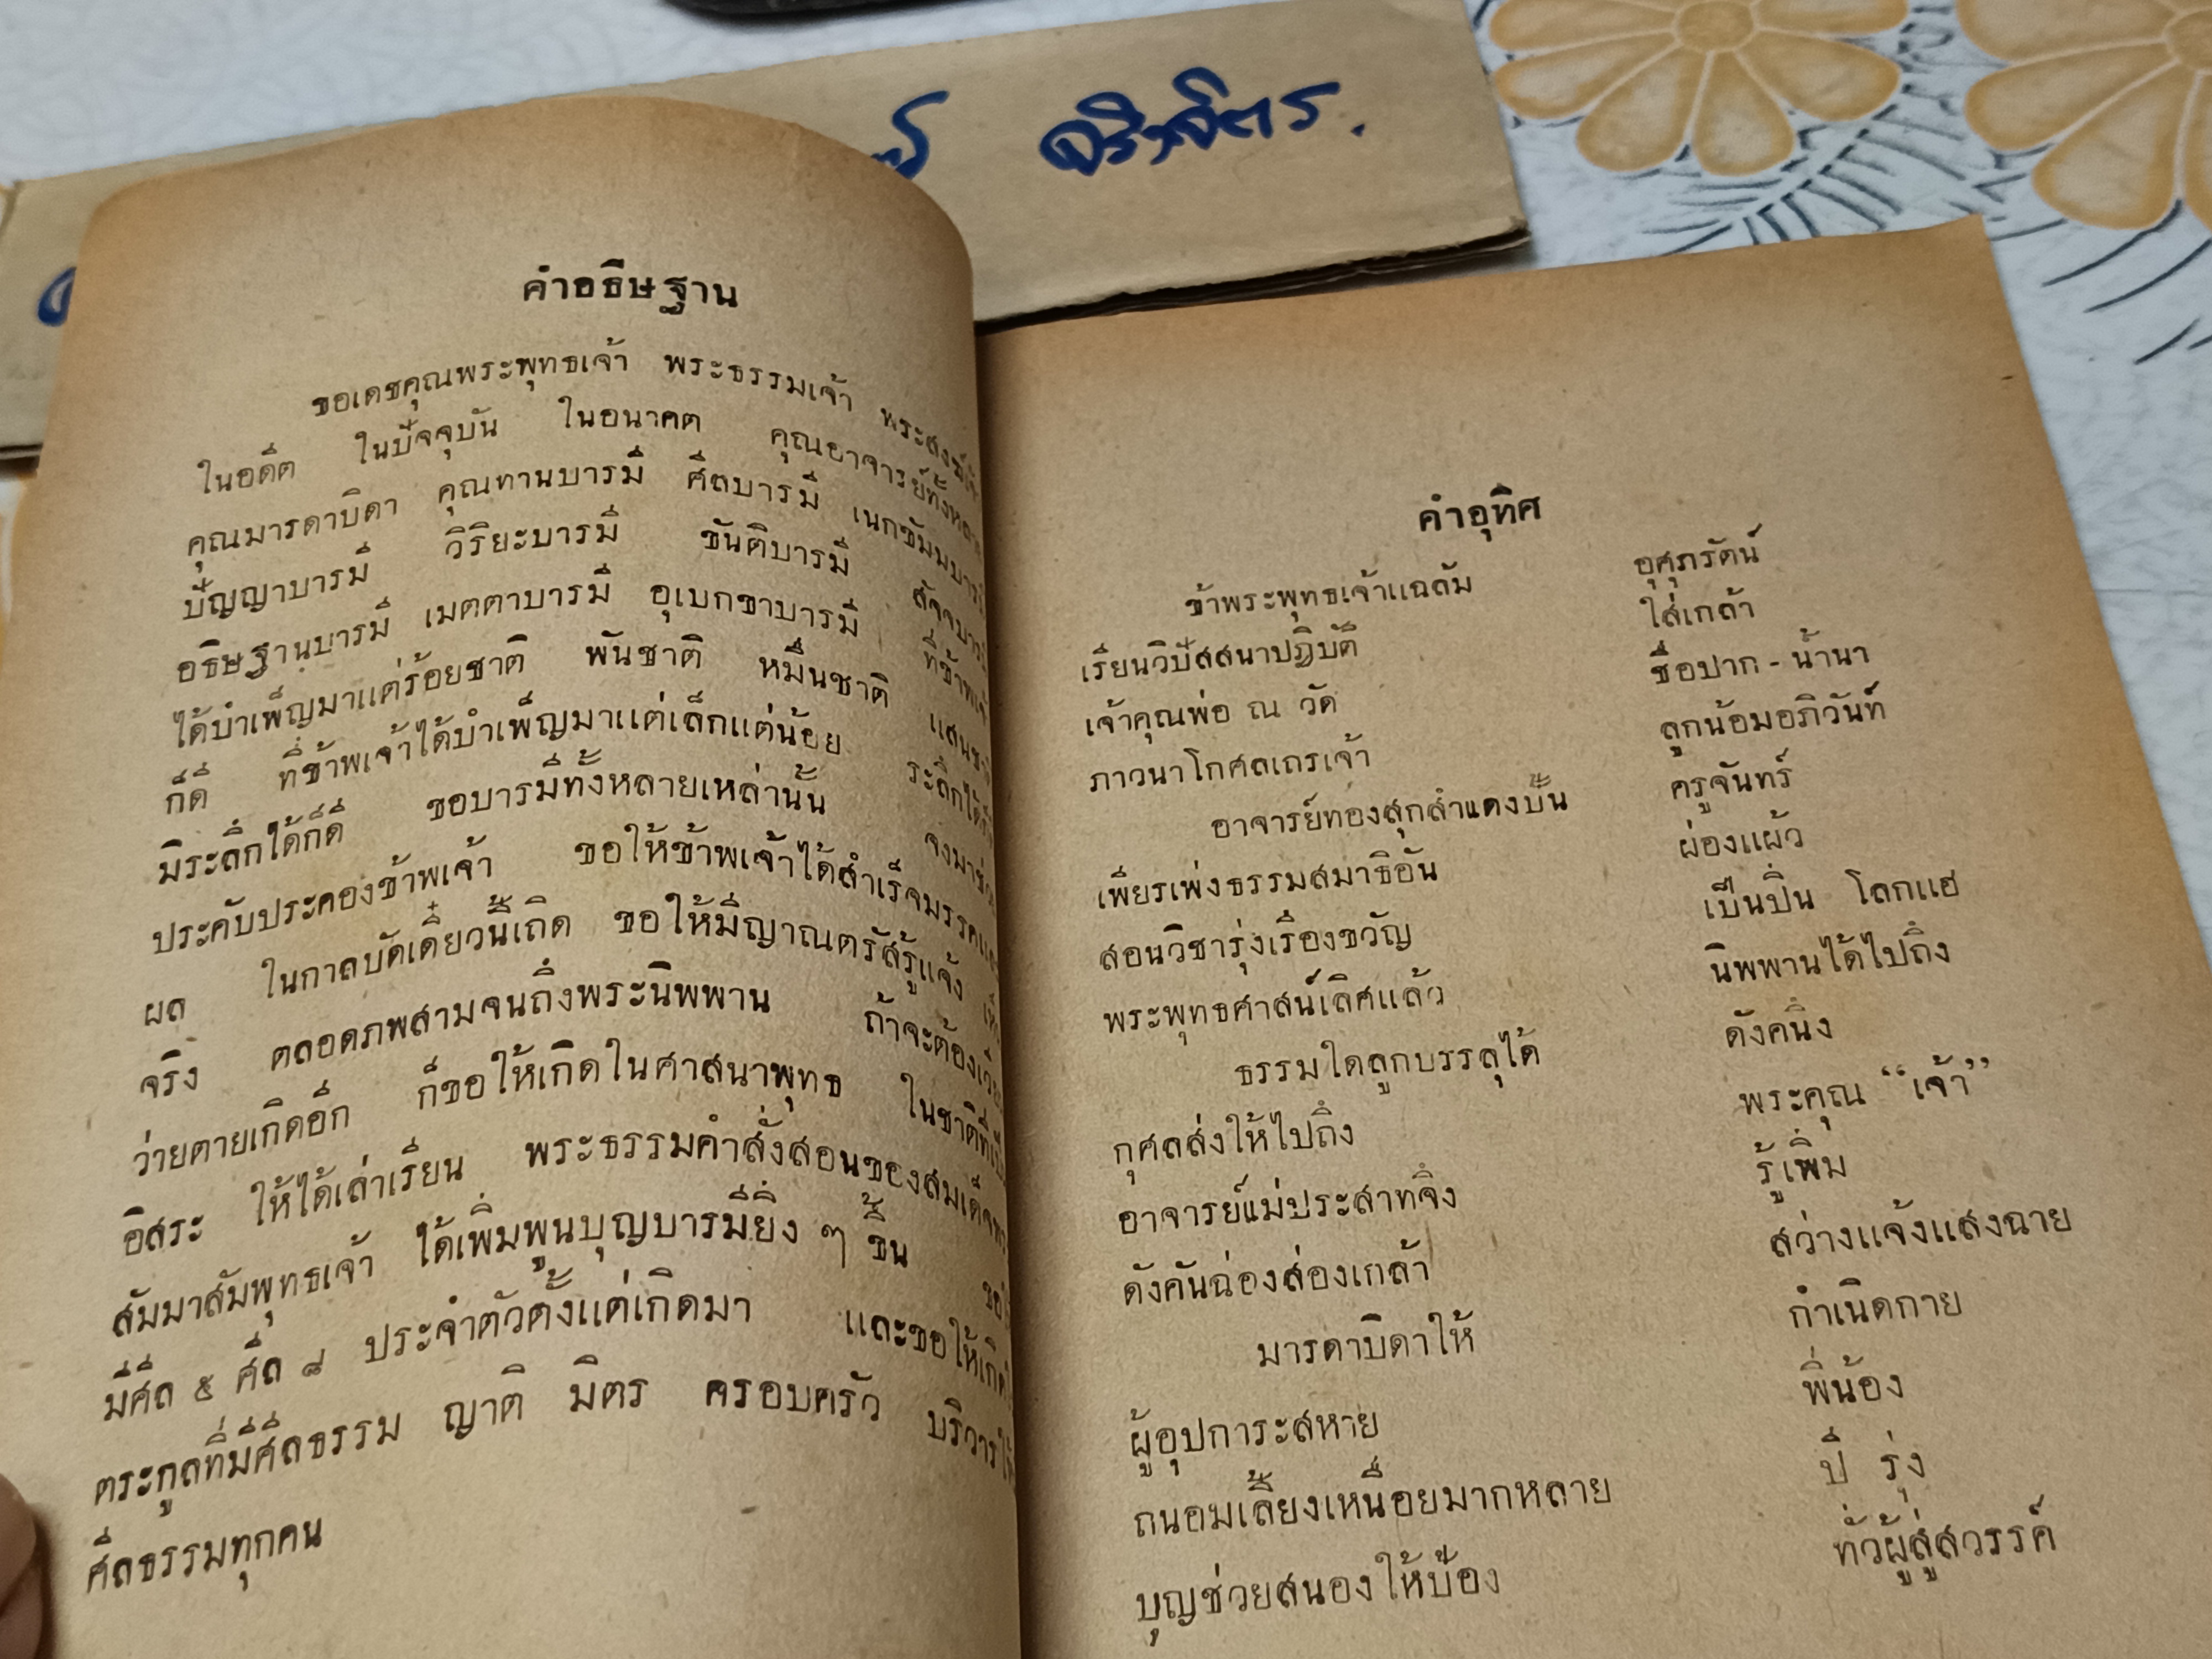 จริงจิตร.
คำอธิษฐาน
ขอเดชคุณพระพุทธเจ้า พระธรรมเจ้า
ในอดีต ในปัจจุบัน ในอนาคต คุณอาจารย์ทั้งหลาย
คุณมารดาบิดา คุณทานบารมี ศีลบารมี เนกขัมมบารมี
ปัญญาบารมี วิริยะบารมี ขันติบารมี สัจจบารมี
อธิษฐานบารมี เมตตาบารมี อุเบกขาบารมี
ได้บำเพ็ญมาแต่ร้อยชาติ พันชาติ หมื่นชาติ
ก็ดี ที่ข้าพเจ้าได้บำเพ็ญมาแต่เล็กแต่น้อย
มิระลึกได้ก็ดี ขอบารมีทั้งหลายเหล่านั้น
ประคับประคองข้าพเจ้า ขอให้ข้าพเจ้าได้สำเร็จ
ผล ในกาลบัดเดี๋ยวนี้เถิด ขอให้มีญาณตรัสรู้แจ้ง
จริง ตลอดภพสามจนถึงพระนิพพาน ถ้าจะต้อง
ว่ายตายเกิดอีก ก็ขอให้เกิดในศาสนาพุทธ
อิสระ ให้ได้เล่าเรียน พระธรรมคำสั่งสอนของสมเด็จ
สัมมาสัมพุทธเจ้า ได้เพิ่มพูนบุญบารมียิ่ง ๆ ขึ้น
มีศีล ๕ ศีล ๘ ประจำตัวตั้งแต่เกิดมา และขอให้เกิด
ตระกูลที่มีศีลธรรม ญาติ มิตร ครอบครัว
ศีลธรรมทุกคน
คำอุทิศ
ข้าพระพุทธเจ้าแฉล้ม อุศุภรัตน์
เรียนวิปัสสนาปฏิบัติ ใส่เกล้า
เจ้าคุณพ่อ ณ วัด ชื่อปาก - น้ำนา
ภาวนาโกศลเถรเจ้า ลูกน้อมอภิวันท์
อาจารย์ทองสุกสำแดงบั้น ครูจันทร์
เพียรเพ่งธรรมสมาธิอัน ผ่องแผ้ว
สอนวิชารุ่งเรืองขวัญ เป็นปิ่น โลกแฮ
พระพุทธศาสน์เลิศแล้ว นิพพานได้ไปถึง
ธรรมใดลูกบรรลุได้ ดังคนึง
กุศลส่งให้ไปถึง พระคุณ “เจ้า”
อาจารย์แม่ประสาทจึง รู้เพิ่ม
ดังคันฉ่องส่องเกล้า สว่างแจ้งแสงฉาย
มารดาบิดาให้ กำเนิดกาย
ผู้อุปการะสหาย พี่น้อง
ถนอมเลี้ยงเหนื่อยมากหลาย ปี รุ่ง
บุญช่วยสนองให้ป้อง ทั่วผู้สู่สวรรค์